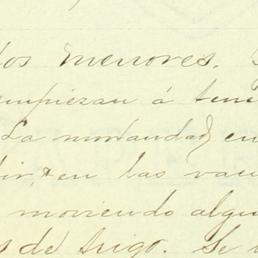 los menores.
empiezan á tene
La mortandad en
dir, en las vacu
moviendo algu
s de trigo. Se